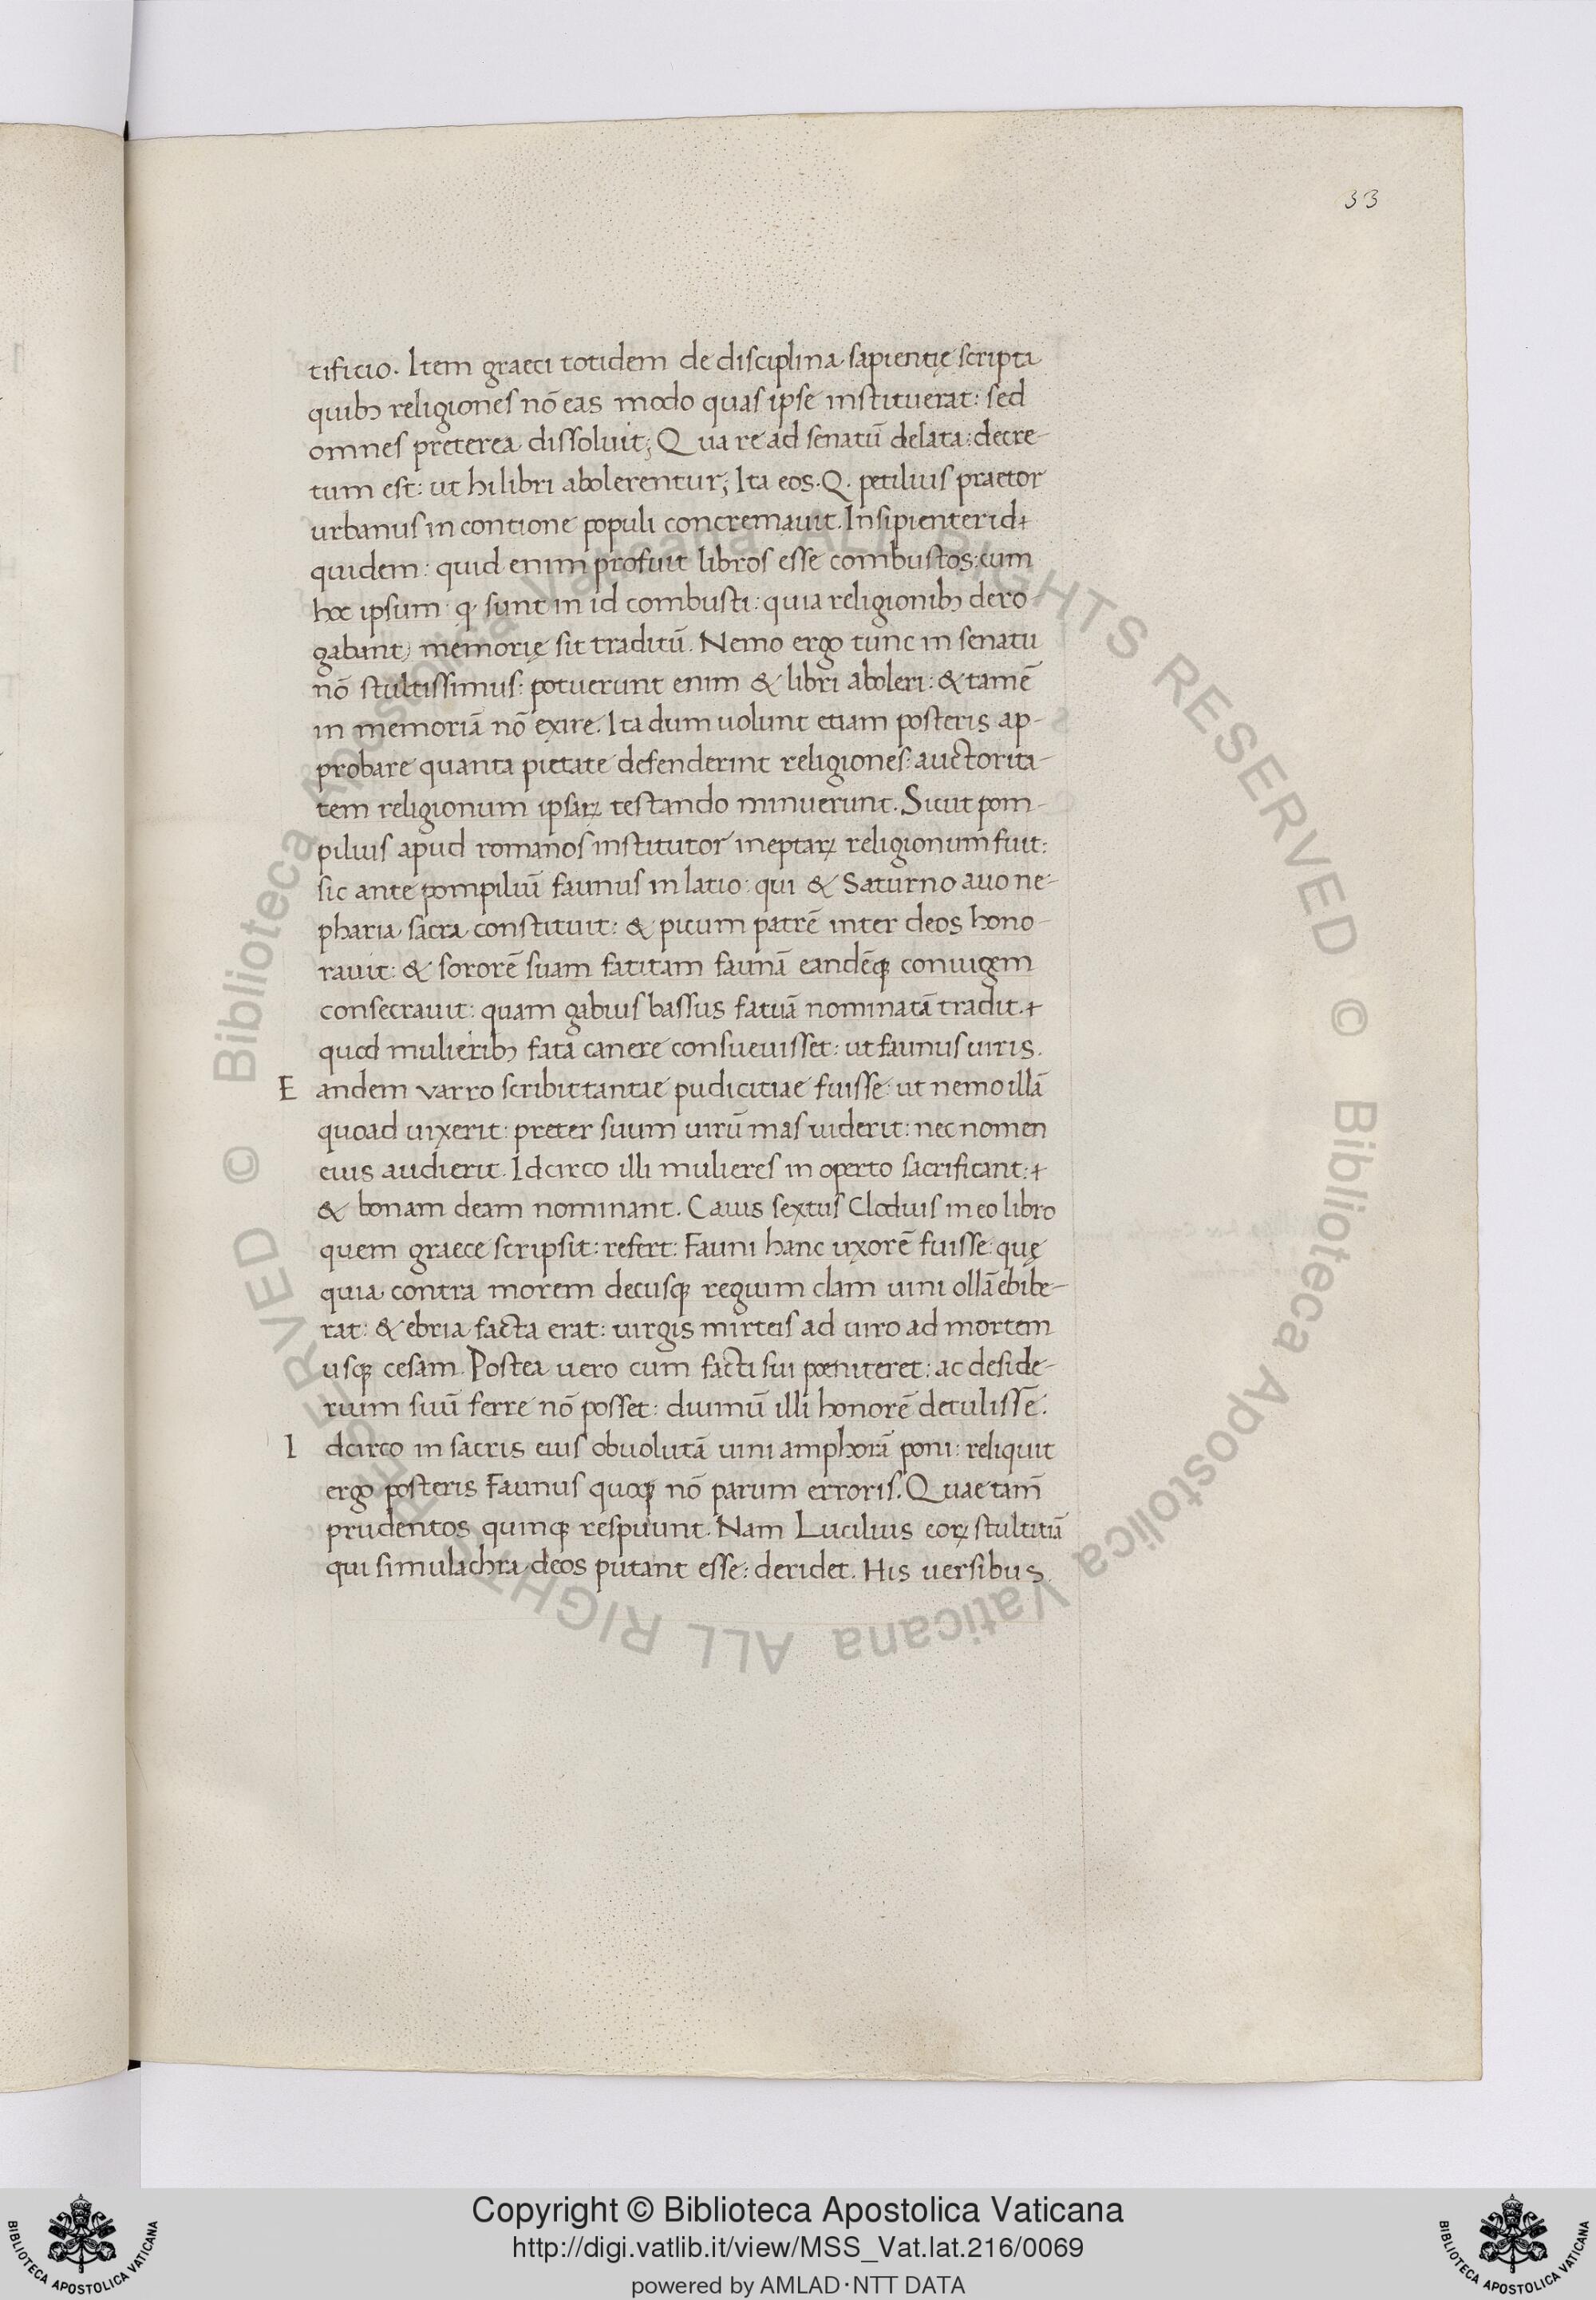 33
tificio. Item graeci totidem de disciplina sapientię scripti
quibꝫ religiones nō eas modo quas ipse instituerat: sed
omnes preterea dissoluit; Qua re ad senatū delata: decre-
tum est: ut hi libri abolerentur; Ita eos. Q. petilius praetor
urbanus in contione populi concremauit. Insipienter id
quidem: quid enim profuit libros esse combustos: cum
hoc ipsum q sunt in id combusti: quia religionibꝫ dero
gabant, memorię sit traditū. Nemo ergo tunc in senatu
nō stultissimus: potuerunt enim & libri aboleri: & tamē
in memoriā nō exire. Ita dum uolunt etiam posteris ap-
probare quanta pietate defenderint religiones: auctorita-
tem religionum ipsaꝝ testando minuerunt. Sicut pom-
pilius apud romanos institutor ineptaꝝ religionum fuit:
sic ante pompiliū faunus in latio: qui & Saturno auo ne-
pharia sacra constituit: & picum patrē inter deos hono-
rauit: & sororē suam fatitam faunā eandēqꝫ coniugem
consecrauit: quam gabius bassus fatuā nominatā tradit.
quod mulieribꝫ fata canere consueuisset: ut faunus uiris.
E andem varro scribit tantae pudicitiae fuisse: ut nemo illā
quoad uixerit: preter suum uirū mas uiderit: nec nomen
eius audierit. Idcirco illi mulieres in operto sacrificant:
& bonam deam nominant. Caius sextus Clodius in eo libro
quem graece scripsit: refert: Fauni hanc uxorē fuisse: quę
quia contra morem decusqꝫ regium clam uini ollā ebibe-
rat: & ebria facta erat: uirgis mirteis ad uiro ad mortem
usqꝫ cesam. Postea uero cum facti sui poeniteret: ac deside-
rium suū ferre nō posset: diuinū illi honorē detulissē.
I dcirco in sacris eius obuolutā uini amphorā poni: reliquit
ergo posteris Faunus quoqꝫ nō parum erroris. Quae tam̄
prudentos quinqꝫ respuunt. Nam Lucilius eoꝝ stultitiā
qui simulachra deos putant esse: deridet. His uersibus.
Biblioteca Apostolica Vaticana ALL RIGHTS RESERVED ©
Biblioteca Apostolica Vaticana ALL RIGHTS RESERVED ©
Copyright © Biblioteca Apostolica Vaticana
http://digi.vatlib.it/view/MSS_Vat.lat.216/0069
powered by AMLAD·NTT DATA
BIBLIOTECA APOSTOLICA VATICANA
BIBLIOTECA APOSTOLICA VATICANA